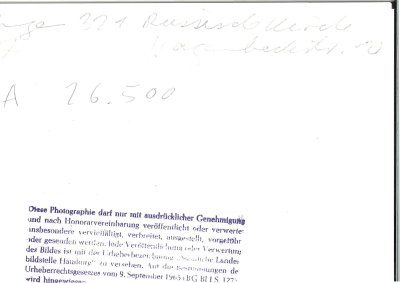 221 Russische Kirch
Hagenbeckstr. 10
A 26.500
Diese Photographie darf nur mit ausdrücklicher Genehmigung
und nach Honorarvereinbarung veröffentlicht oder verwertet
insbesondere vervielfältigt, verbreitet, ausgestellt, vorgeführ
oder gesendet werden. Jede Veröffentlichung oder Verwertung
des Bildes ist mit der Urheberbezeichnung „Staatliche Landes
bildstelle Hamburg" zu versehen. Auf die Bestimmungen de
Urheberrechtsgesetzes vom 9. September 1965 (BG Bl I S. 127
wird hingewiesen